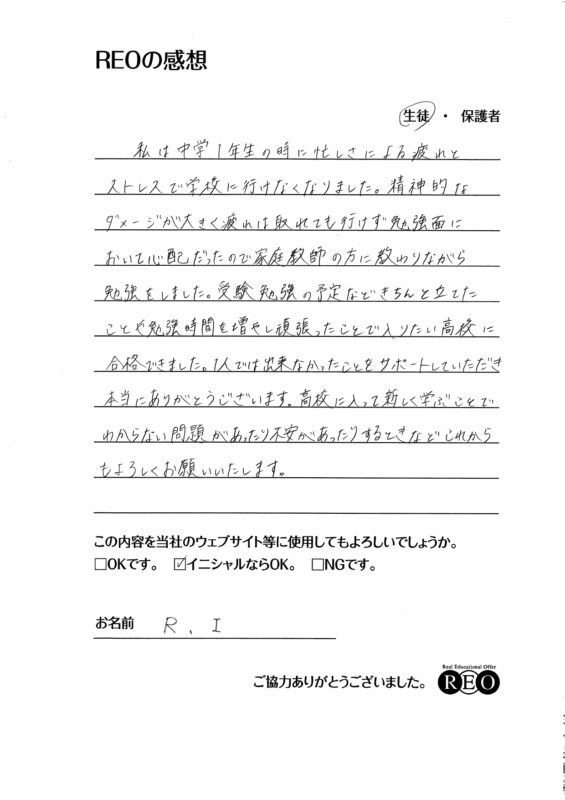 REOの感想
生徒 ・ 保護者
私は中学1年生の時に忙しさによる疲れと
ストレスで学校に行けなくなりました。精神的な
ダメージが大きく疲れは取れても行けず勉強面に
おいて心配だったので家庭教師の方に教わりながら
勉強をしました。受験勉強の予定などきちんと立てた
ことや勉強時間を増やし頑張ったことで入りたい高校に
合格できました。1人では出来なかったことをサポートしていただき
本当にありがとうございます。高校に入って新しく学ぶことで
わからない問題があったり不安があったりするときなどこれから
もよろしくお願いいたします。
この内容を当社のウェブサイト等に使用してもよろしいでしょうか。
□OKです。 ☑イニシャルならOK。 □NGです。
お名前 R. I
ご協力ありがとうございました。
Real Educational Offer
REO